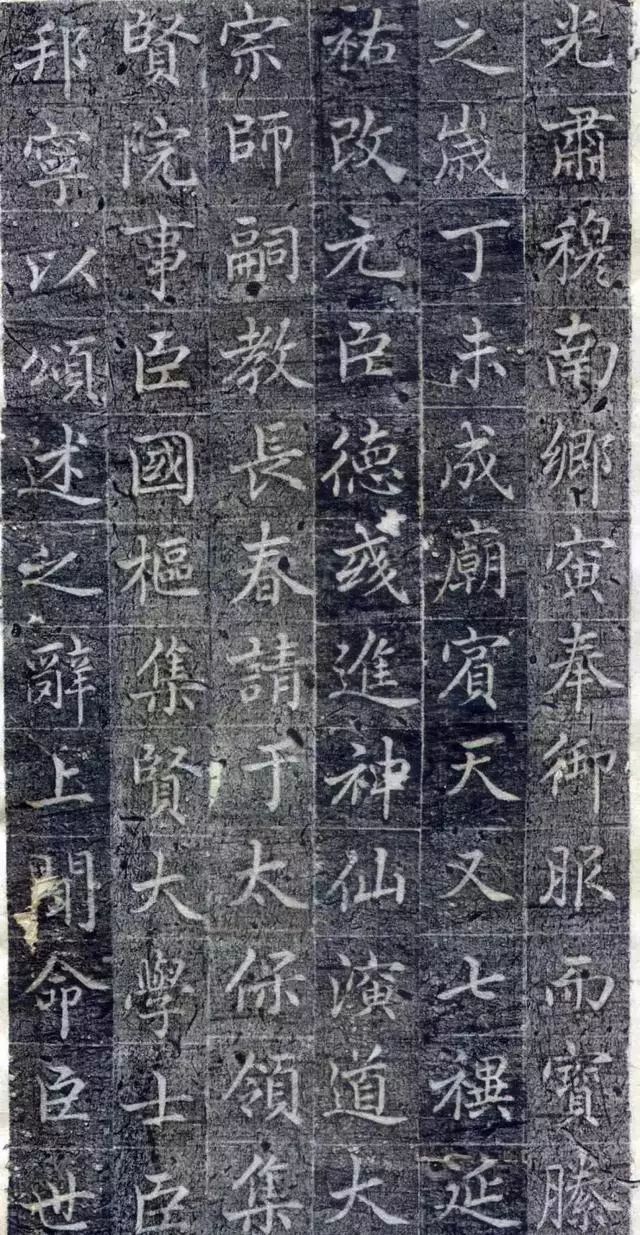 光肅穆南鄉寅奉御服而寶滕
之歲丁未成廟賓天又七禩延
祐改元臣德彧進神仙演道大
宗師嗣教長春請于太保領集
賢院事臣國樞集賢大學士臣
邦寧以頌述之辭上聞命臣世